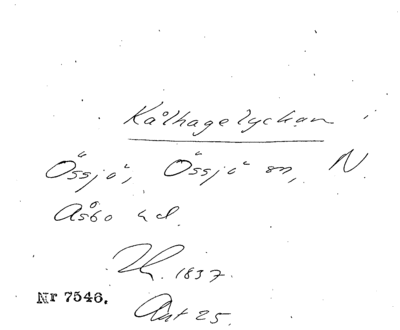 Kålhagelyckan
Össjö, Össjö sn, N.
Åsbo hd.
1837.
Nr 7546.
Akt 25.